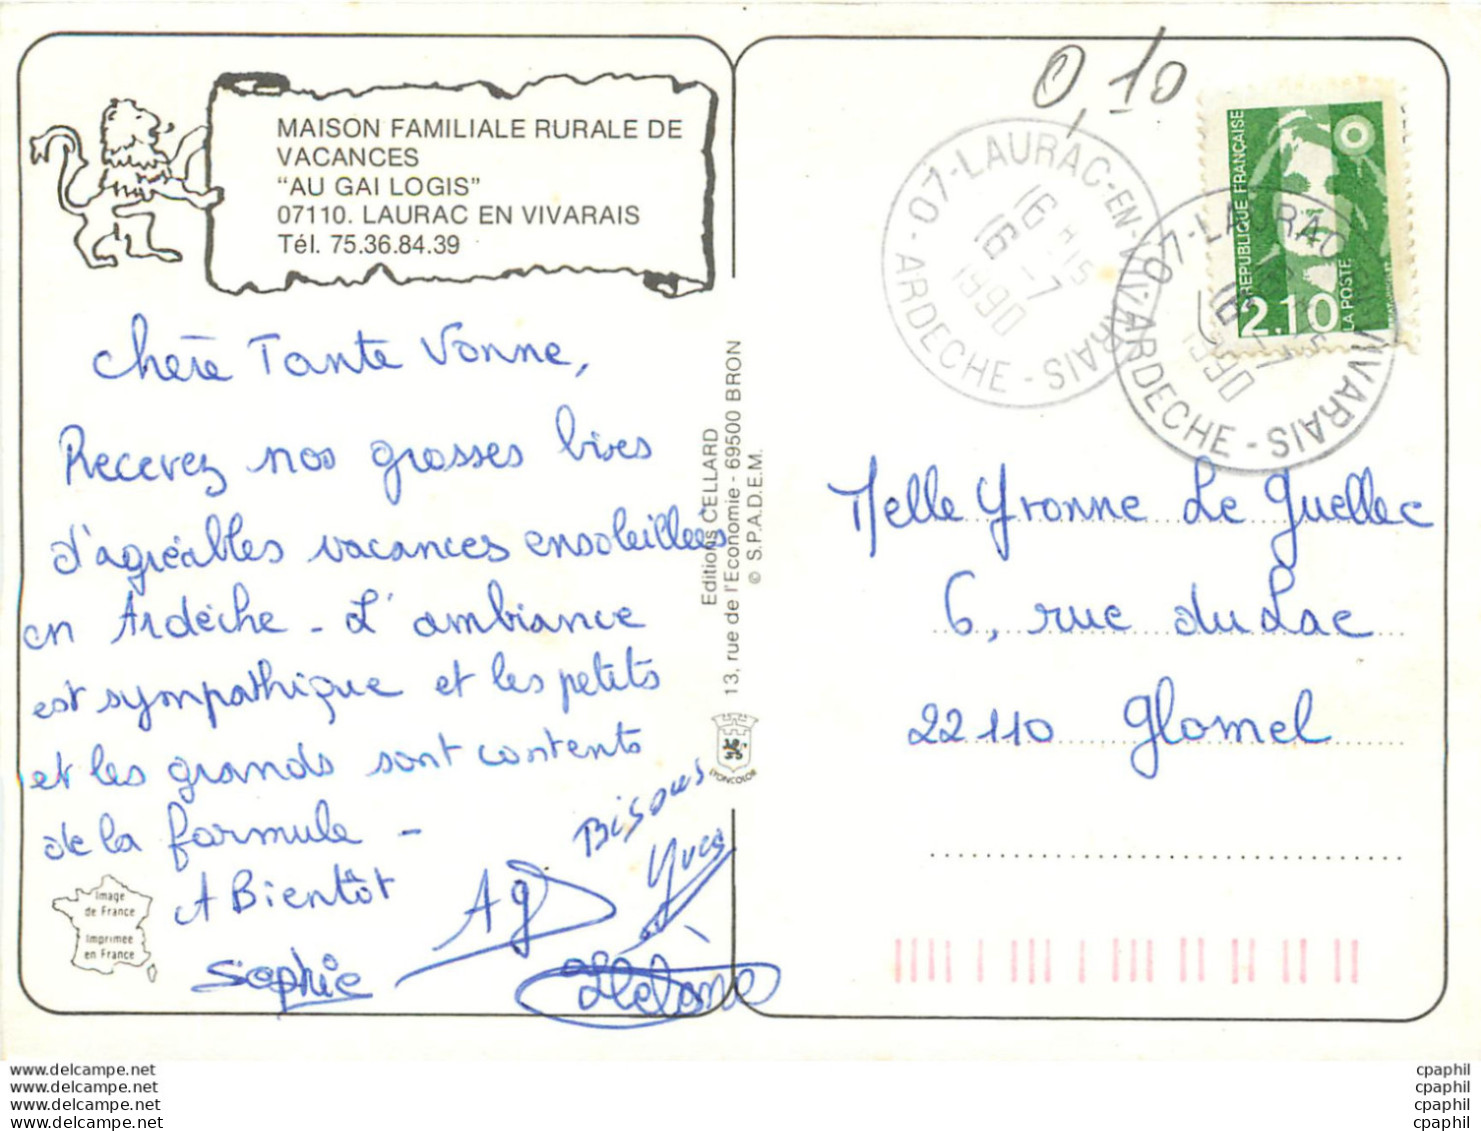 MAISON FAMILIALE RURALE DE
VACANCES
"AU GAI LOGIS"
07110. LAURAC EN VIVARAIS
Tél. 75.36.84.39
Chère Tante Vonne,
Recevez nos grosses bises
d'agréables vacances ensoleillées
en Ardèche - L'ambiance
est sympathique et les petits
et les grands sont contents
de la formule -
A Bientôt
Sophie
Bisous
Yves
Hélène
Image
de France
Imprimée
en France
Editions CELLARD
13, rue de l'Economie - 69500 BRON
© S.P.A.D.E.M.
LYONCOLOR
0,10
07-LAURAC-EN-VIVARAIS
ARDECHE
16 H 15
16 -7
1990
REPUBLIQUE FRANÇAISE
2,10
LA POSTE
07-LAURAC-EN-VIVARAIS
ARDECHE
1990
Melle Yvonne Le Guellec
6, rue du Lac
22110 Glomel
www.delcampe.net
www.delcampe.net
www.delcampe.net
www.delcampe.net
cpaphil
cpaphil
cpaphil
cpaphil